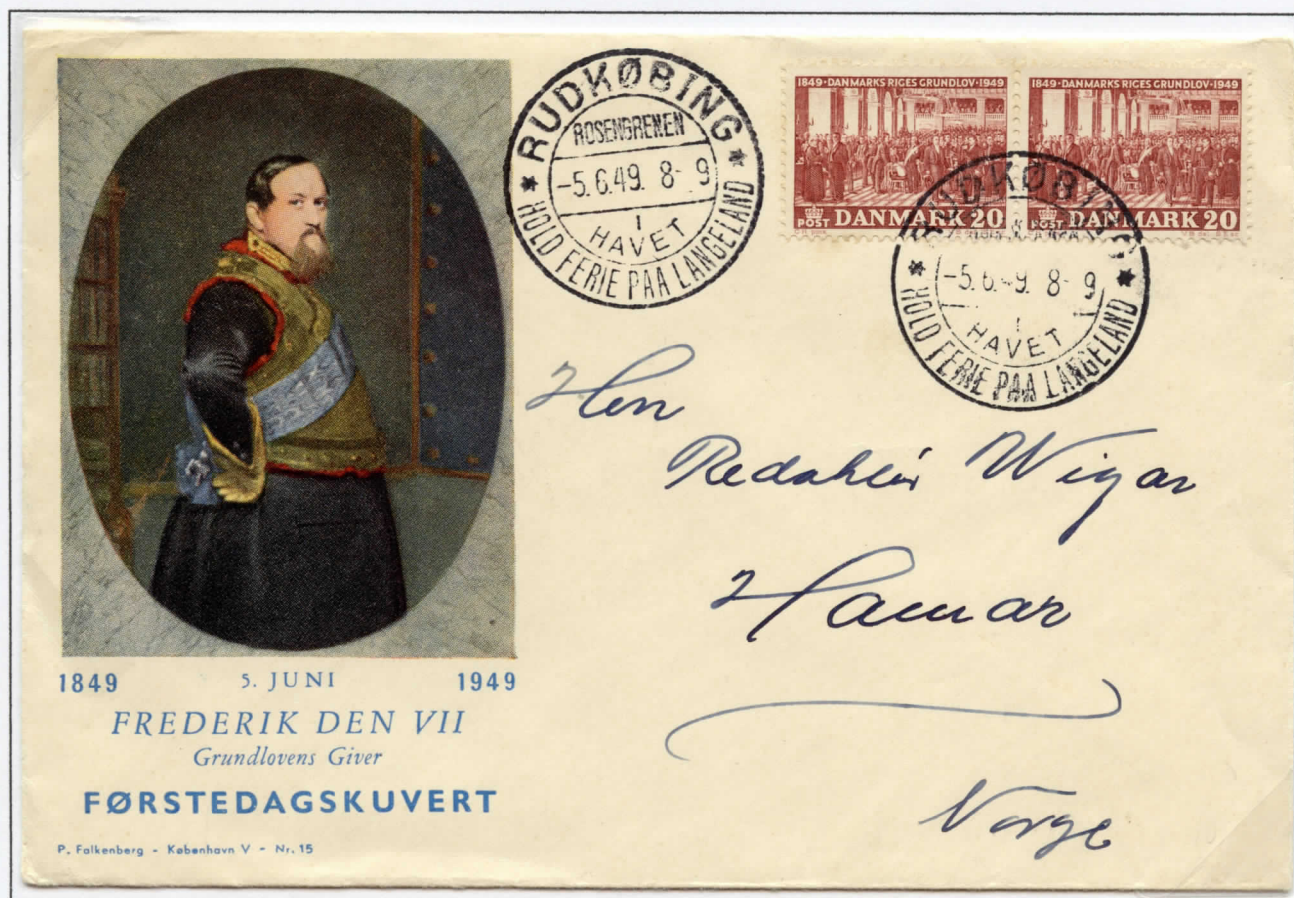 RUDKØBING
ROSENGRENEN
-5.6.49. 8- 9
I
HAVET
* HOLD FERIE PAA LANGELAND *
1849·DANMARKS RIGES GRUNDLOV·1949
POST DANMARK 20
1849·DANMARKS RIGES GRUNDLOV·1949
POST DANMARK 20
RUDKØBING
-5.6.49. 8- 9
I
HAVET
* HOLD FERIE PAA LANGELAND *
Herr
Redaktør Wigar
Hamar
Norge
1849 5. JUNI 1949
FREDERIK DEN VII
Grundlovens Giver
FØRSTEDAGSKUVERT
P. Falkenberg - København V - Nr. 15